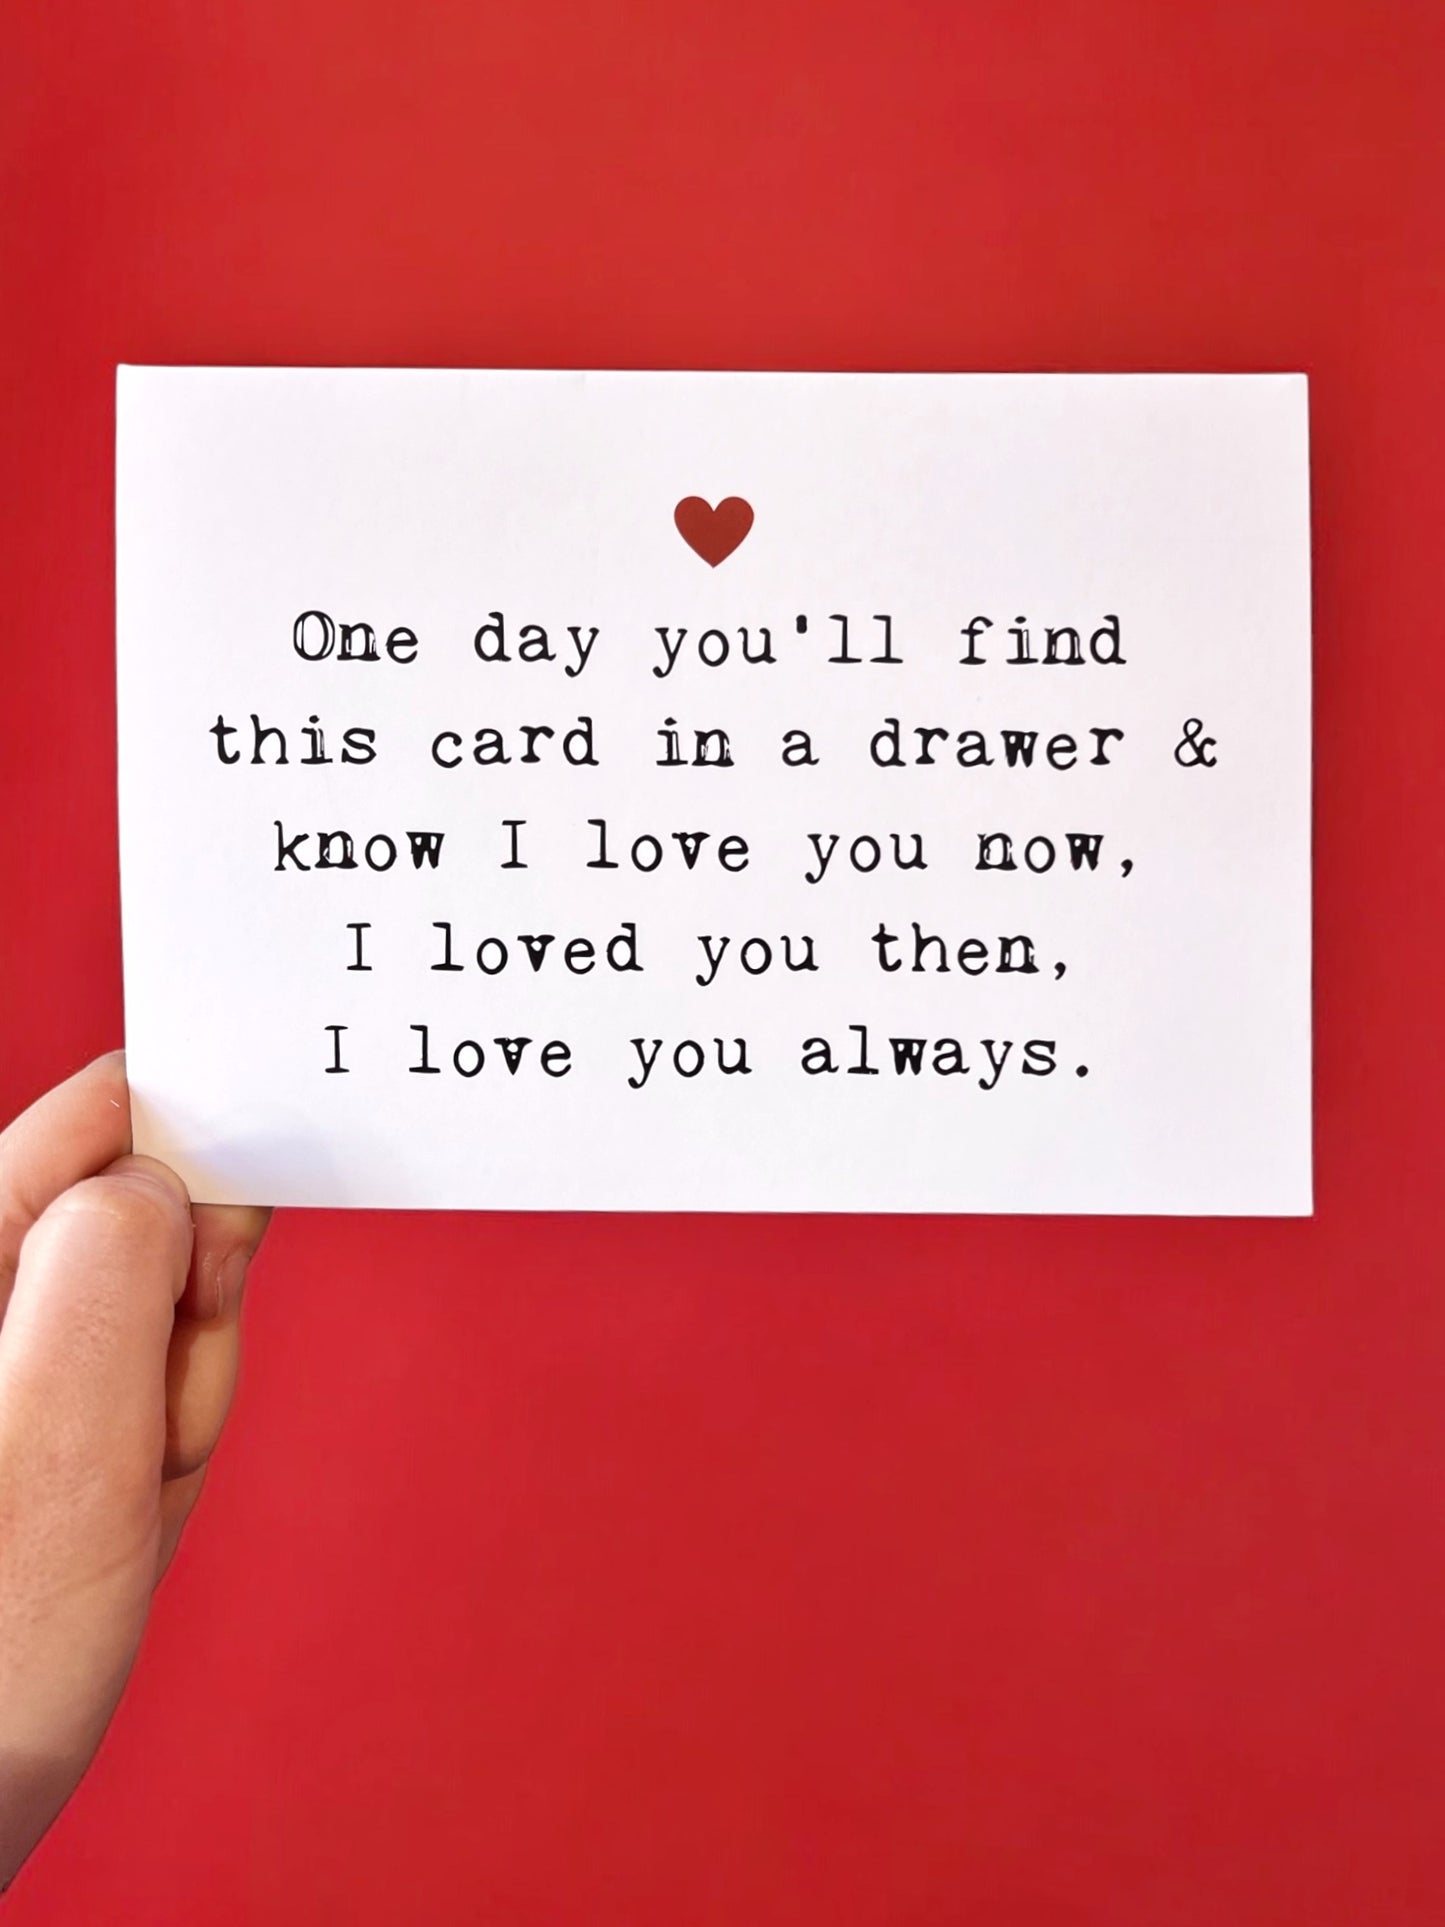 One day you'll find
this card in a drawer &
know I love you now,
I loved you then,
I love you always.